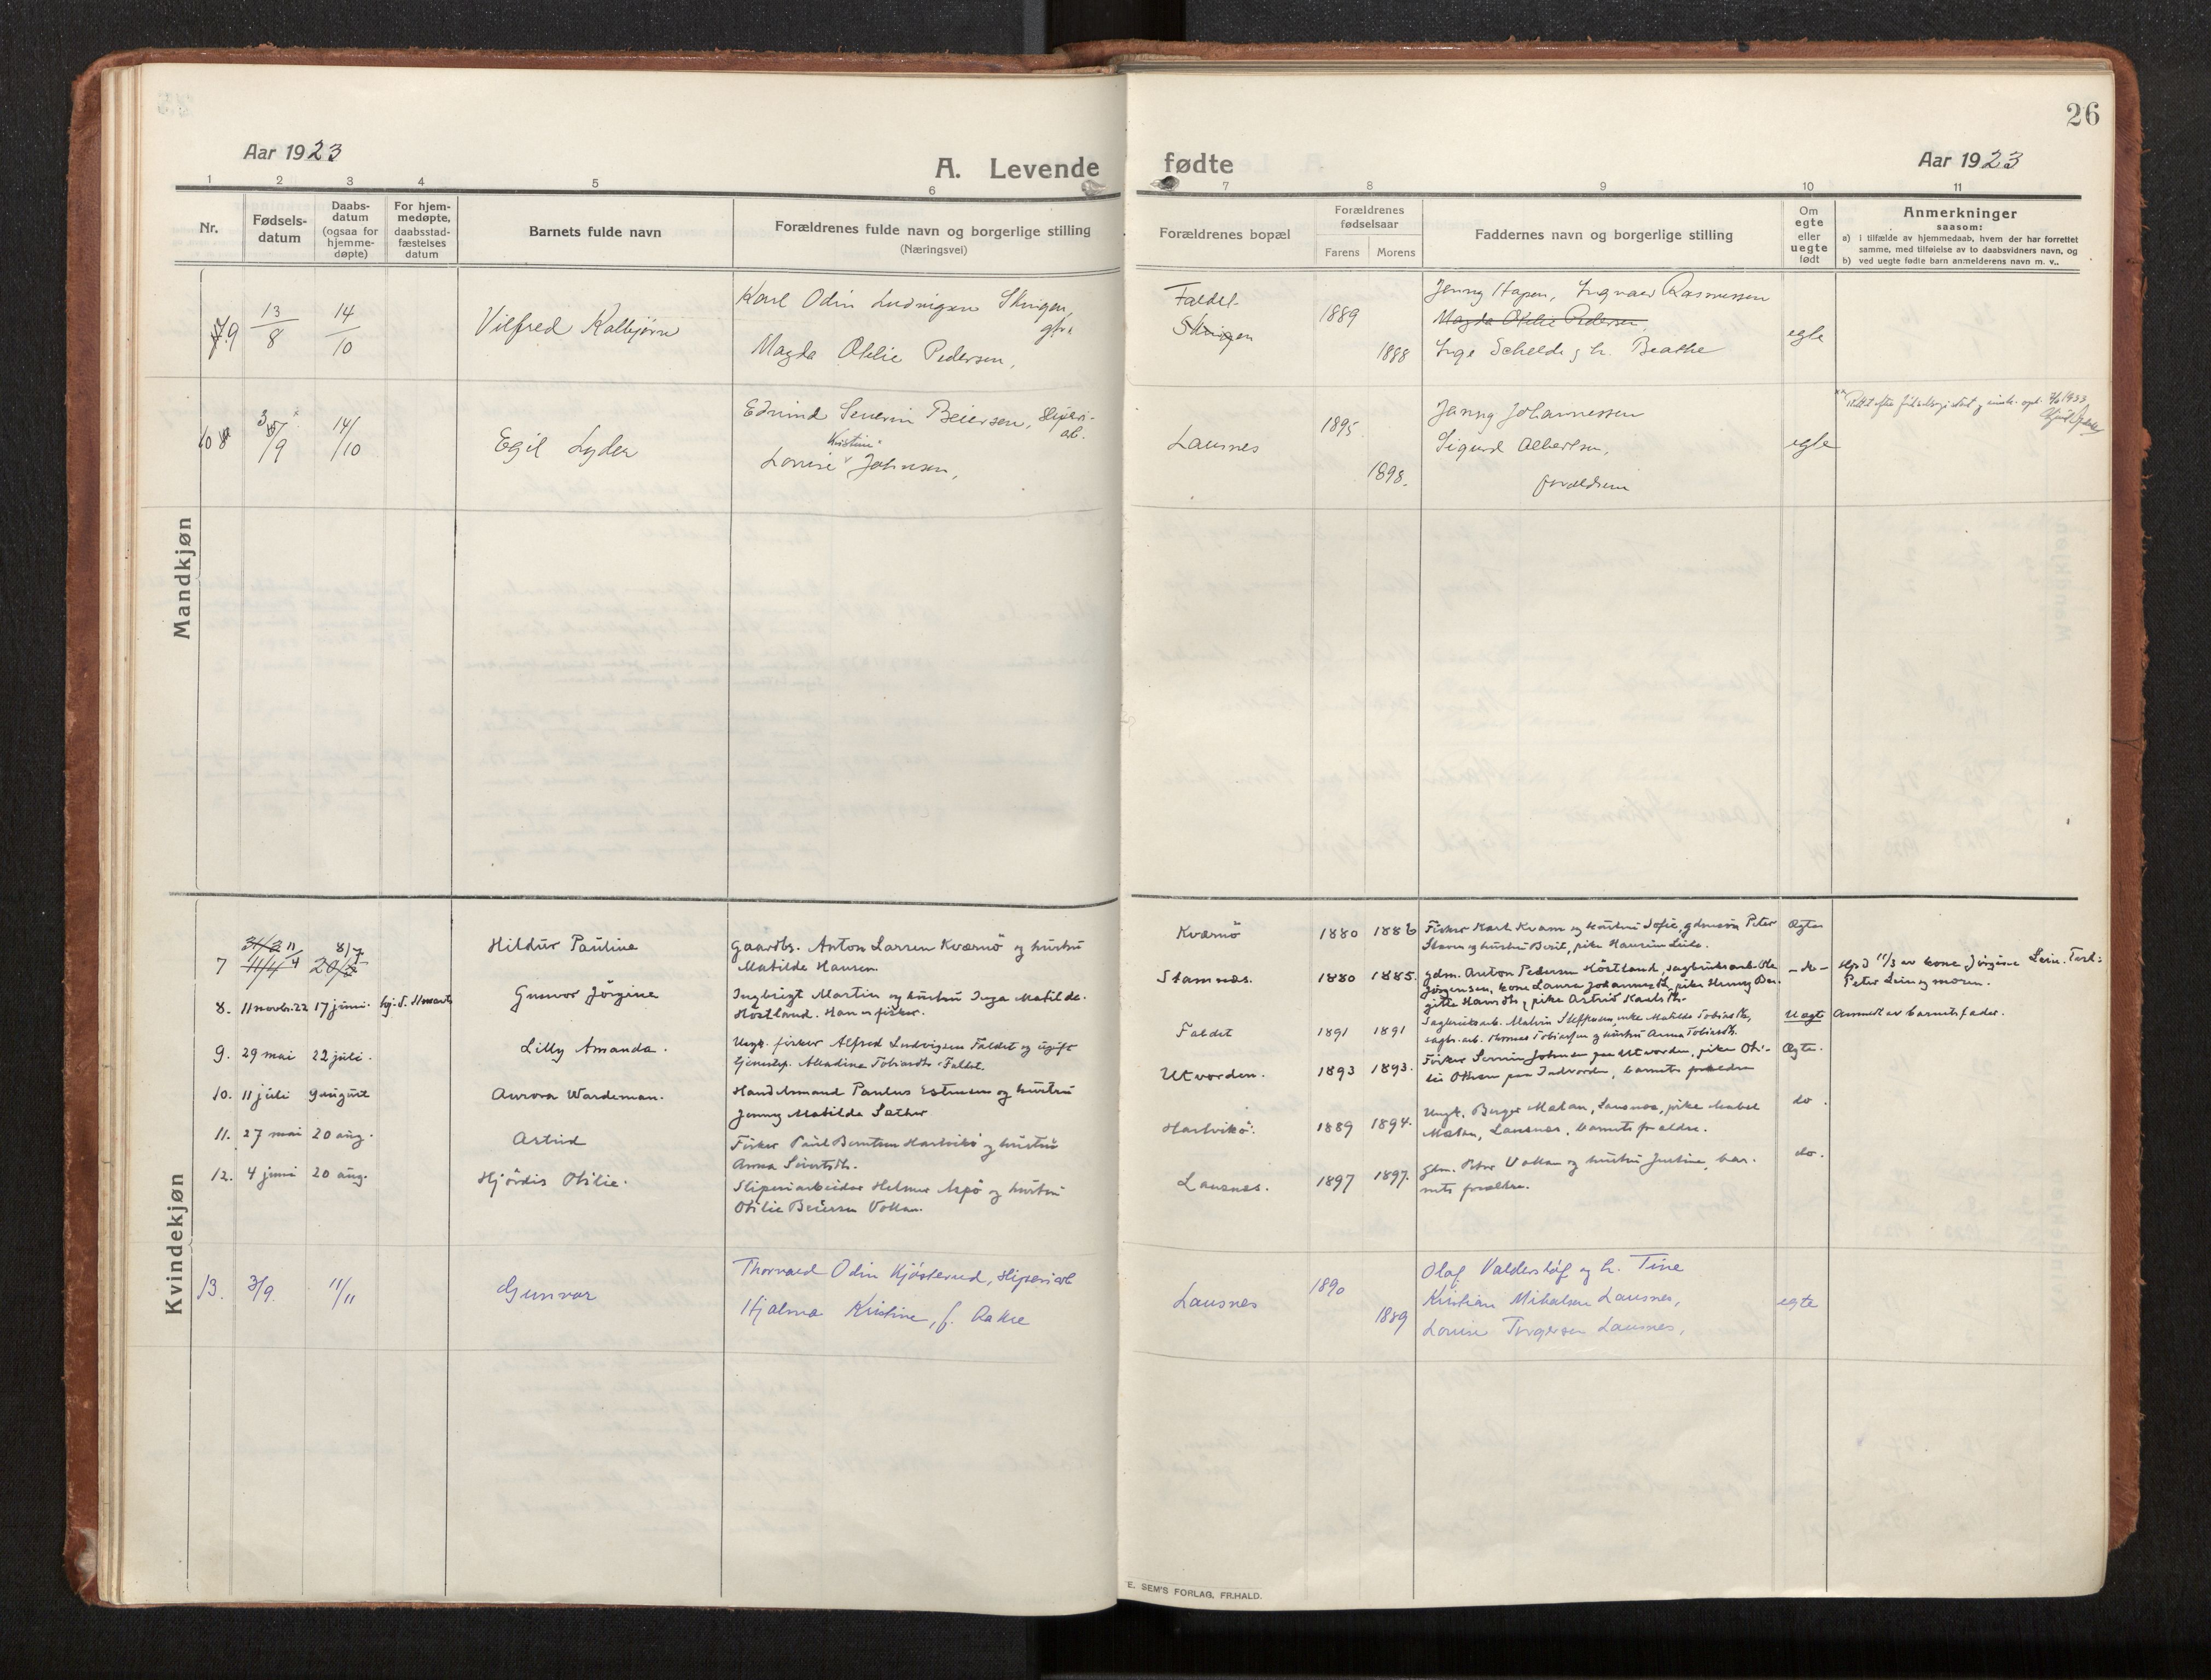 26
Aar 1923
A. Levende
fødte
Aar 1923
1 2 3 4 5 6 7 8 9 10 11
Nr.
Fødsels-
datum
Daabs-
datum
(ogsaa for
hjemme-
døpte)
For hjem-
medøpte,
daabsstad-
fæstelses
datum
Barnets fulde navn
Forældrenes fulde navn og borgerlige stilling
(Næringsvei)
Forældrenes bopæl
Forældrenes
fødselsaar
Farens Morens
Faddernes navn og borgerlige stilling
Om
egte
eller
uegte
født
Anmerkninger
saasom:
a) i tilfælde av hjemmedaab, hvem der har forrettet
samme, med tilføielse av to daabsvidners navn, og
b) ved uegte fødte barn anmelderens navn m. v..
Mandkjøn
9 13/8 14/10 Vilfred Kolbjørn
Karl Odin Ludvigsen Skingen,
Magda Otelie Pedersen,
Faldet
Skingen
1889
1888
Jenny Hagen, Ingvald Rasmussen
Magda Otelie Pedersen,
Inge Schelde og h. Beathe
egte
10 3/9 14/10 Egil Lyder
Edvind Severin Beiersen, sliperi-
arb.
Kristine
Lovise Johnsen,
Lausnes
1895
1898.
Jenny Johannessen
Sigurd Albertsen,
forældrene
egte
Kvindekjøn
7 31/3 11/4 11/4 8/7 20/8 Hildur Pauline
Gaardbr. Anton Larsen Kværnö og hustru
Matilde Hansen.
Kværnö
1880 1886
Fisker Karl Kvam og hustru Sofie, gdmasön Peter
Stavn og hustru Berit, pike Hansine Leile.
Ægte
8. 11 novbr. 22 17 juni. Gunvor Jörgine
Ingbrigt Martin og hustru Inga Matilde.
Höstland. Han er fisker.
Stamnes.
1880 1885.
gdm. Anton Pedersen Höstland, sagbruksarb. Ole
Jörgensen, kone Laura Johannesdtr, pike Henny Bir-
gitte Hansdtr, pike Astrid Karlsdtr.
- do -
Hjd 11/3 av kone Jörgine Lein. Test:
Peter Lein og moren.
9. 29 mai 22 juli. Lilly Amanda.
Ungk. fisker Alfred Ludvigsen Faldet og ugift
tjenestep. Aladine Tobiasdtr Faldet.
Faldet
1891 1891
Sagbruksarb. Malvin Steffensen, enke Matilde Tobiasdtr,
sagbr. arb. Thomas Tobiassen og hustru Anna Tobiasdtr.
Uægte
Anmeldt av barnets fader.
10. 11 juli 9 august Aurora Wardeman.
Handelsmand Paulus Estensen og hustru
Jenny Matilde Sæther
Utvorden.
1893 1893.
Fisker Severin Johnsen paa Utvorden, pike Oti-
lie Ottesen paa Indvorden, barnets forældre
Ægte.
11. 27 mai 20 aug. Astrid
Fisker Paul Berntsen Hartvikö og hustru
Anna Sivertsdtr.
Hartvikö.
1889 1894.
Ungk. Birger Mælan, Lausnes, pike Mabel
Mælan, Lausnes, barnets forældre.
do.
12. 4 juni 20 aug. Hjördis Otilie.
Sliperiarbeider Helmer Aspö og hustru
Otilie Beiersen Vollan.
Lausnes.
1897 1897.
gdm. Peter Vollan og hustru Justine, bar-
nets forældre.
do.
13. 3/9. 11/11 Gunvor
Thorvald Odin Kjösterud, sliperiarb
Hjalma Kristine, f. Aakre
Lausnes
1890
1889
Olaf Valderslöf og h. Tine
Kristian Mikalsen Lausnes,
Louise Torgersen Lausnes,
egte
E. SEM'S FORLAG, FR.HALD.